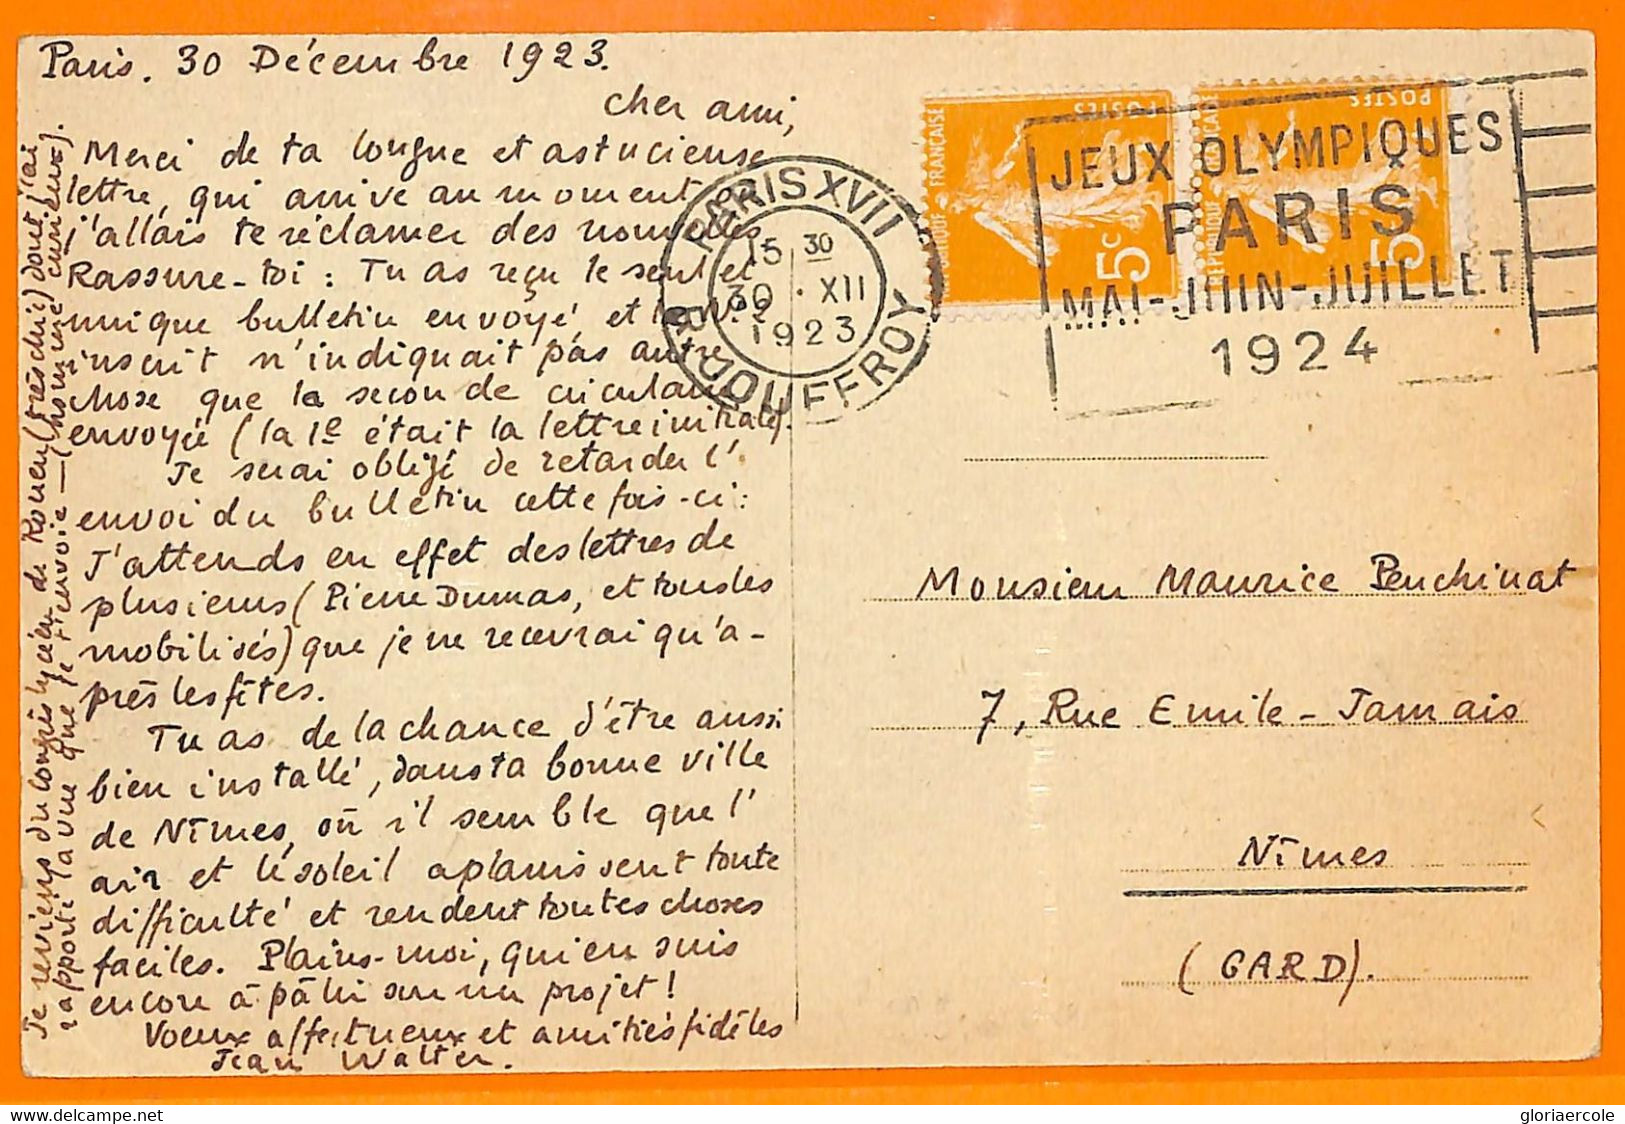 Paris. 30 Décembre 1923.
Cher ami,
Merci de ta longue et astucieuse
lettre, qui arrive au moment où
j'allais te réclamer des nouvelles.
Rassure-toi : Tu as reçu le seul et
unique bulletin envoyé, et le N° 2
inscrit n'indiquait pas autre
chose que la seconde circulaire
envoyée (la 1e était la lettre initiale).
Je serai obligé de retarder l'
envoi du bulletin cette fois-ci :
J'attends en effet des lettres de
plusieurs (Pierre Dumas, et tous les
mobilisés) que je ne recevrai qu'a-
près les fêtes.
Tu as de la chance d'être aussi
bien installé, dans ta bonne ville
de Nîmes, où il semble que l'
air et le soleil aplanissent toute
difficulté et rendent toutes choses
faciles. Plains-moi, qui en suis
encore à pâlir sur un projet !
Voeux affectueux et amitiés fidèles
Jean Walter.
Je reviens du congrès lycéen de Rouen (très chic) dont j'ai
rapporté la vue que je t'envoie — (hommme curieux).
PARIS XVII
15 30
30 · XII
1923
R. JOUFFROY
JEUX OLYMPIQUES
PARIS
MAI-JUIN-JUILLET
1924
POSTES
REPUBLIQUE FRANÇAISE
5c
POSTES
REPUBLIQUE FRANÇAISE
5
Monsieur Maurice Penchinat
7, Rue Emile-Jamais
Nîmes
(GARD).
gloriaercole